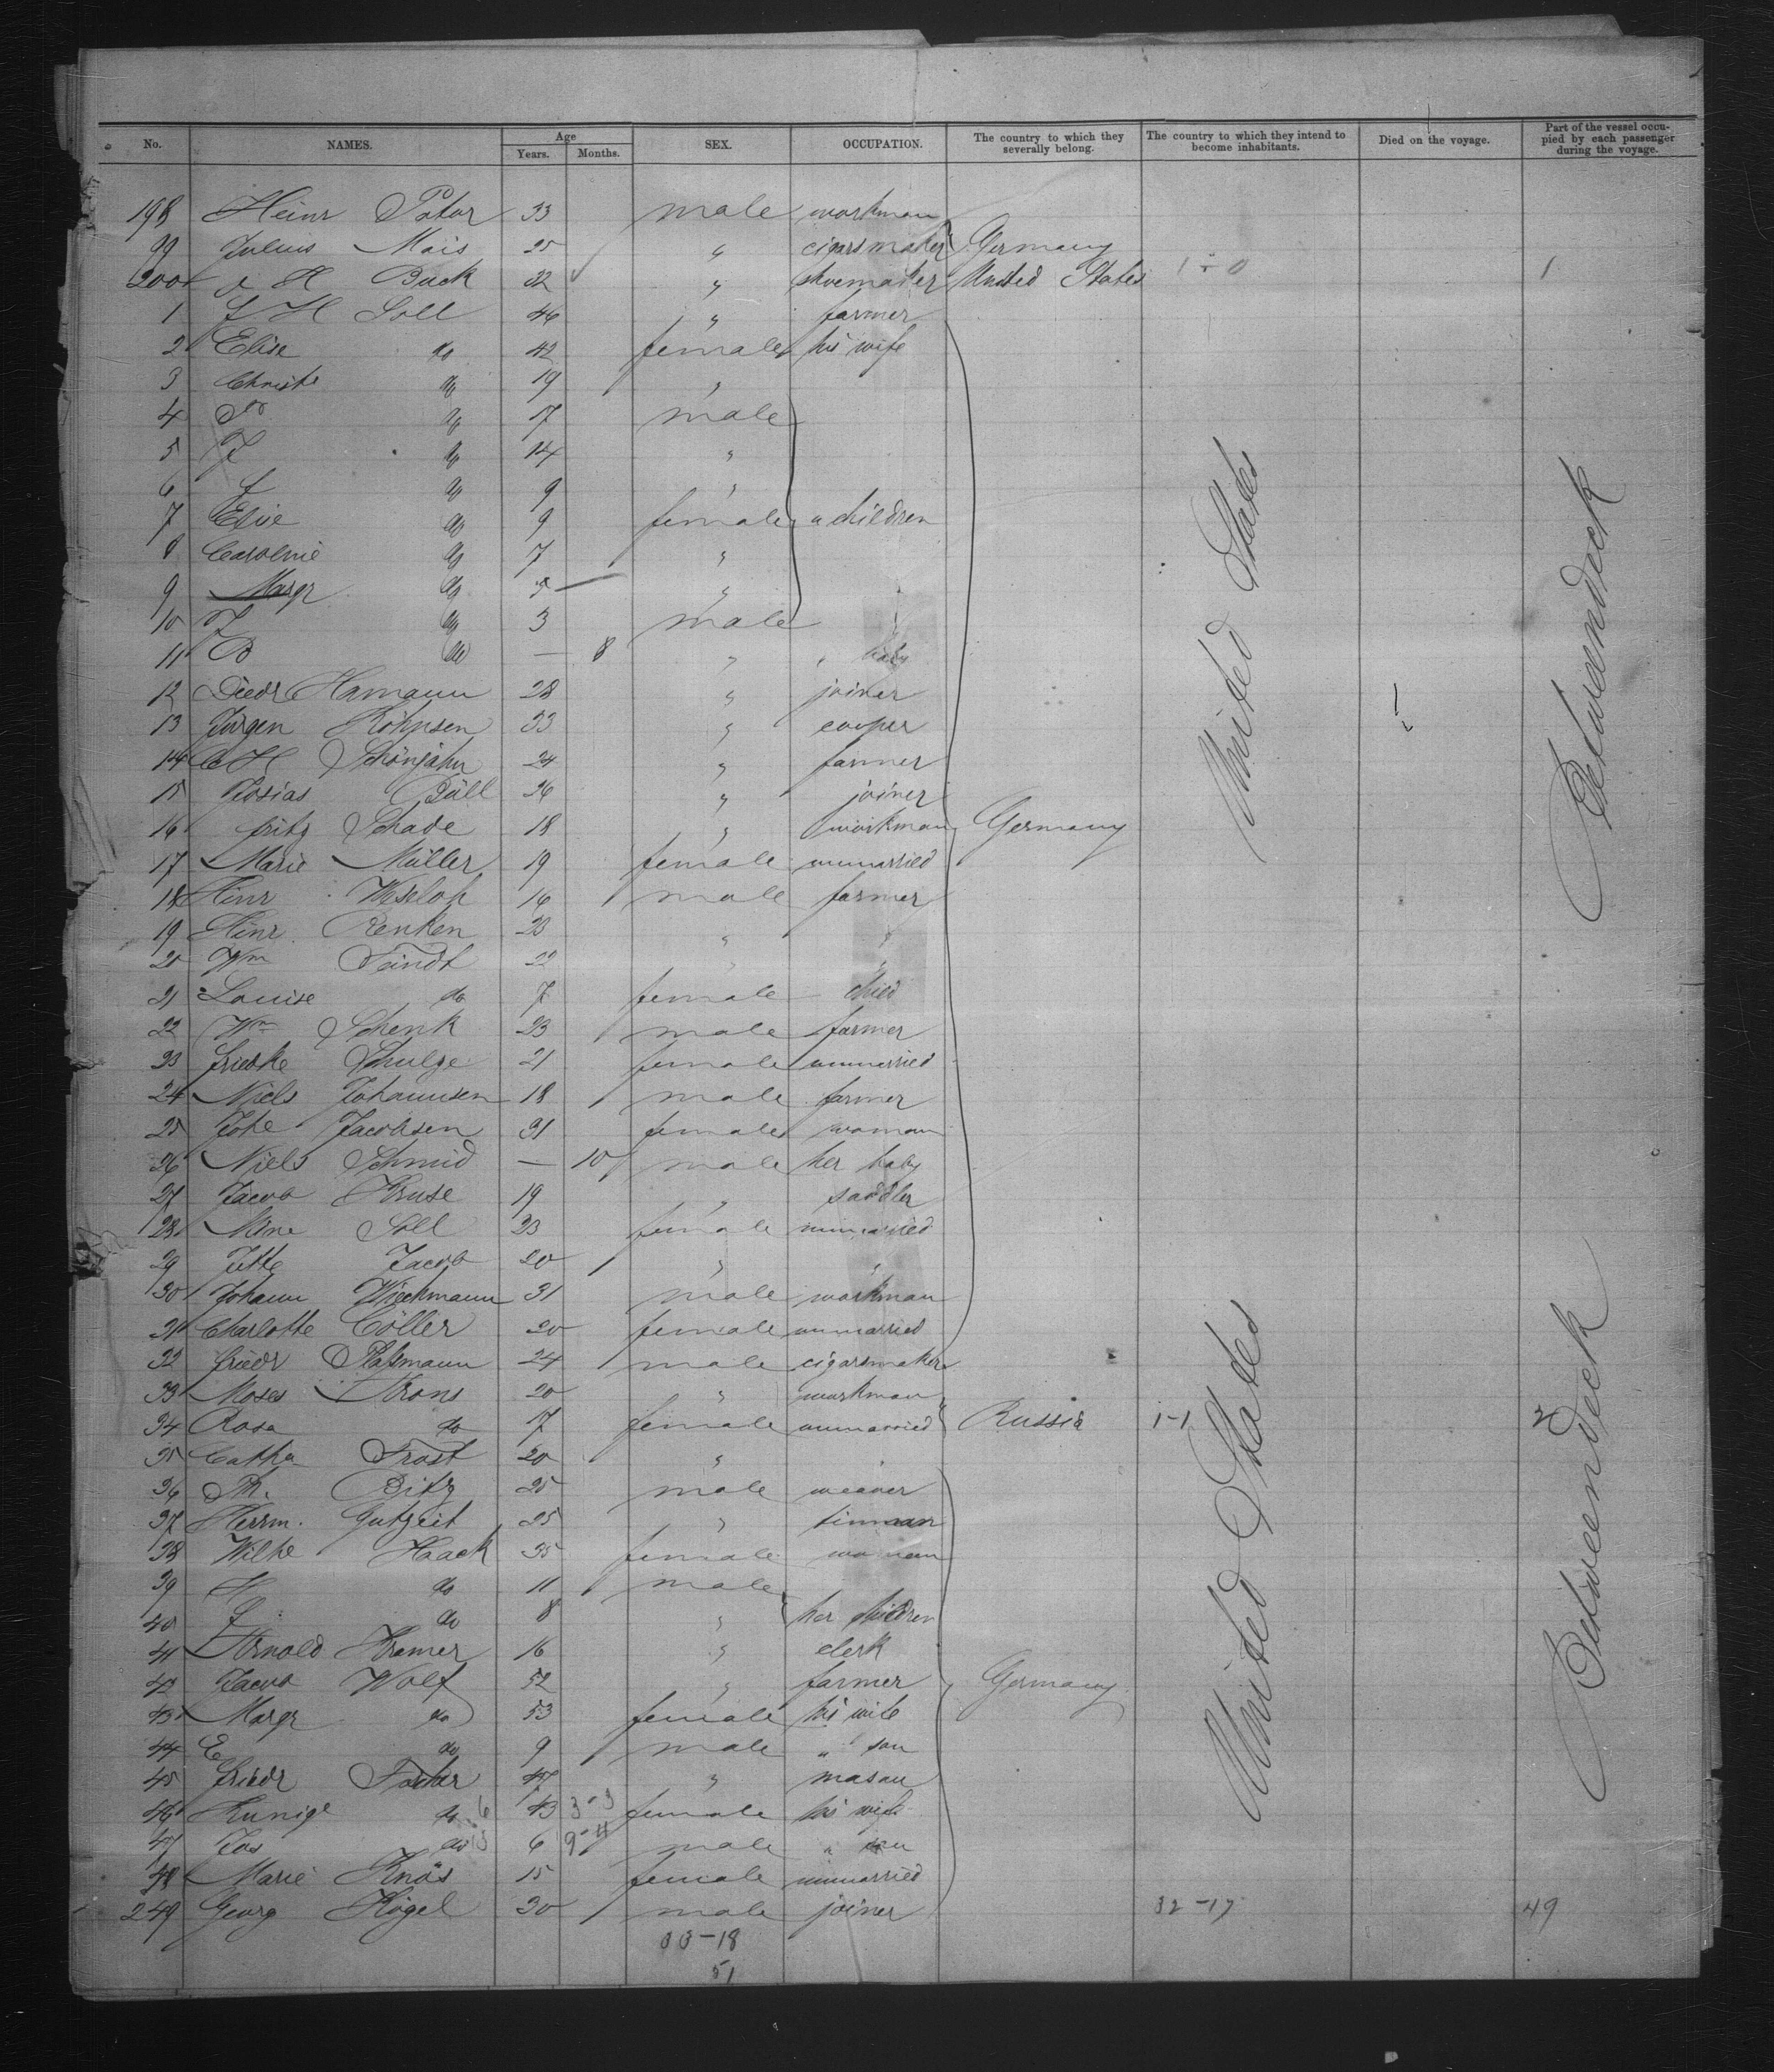 No. NAMES. Age Years. Months. SEX. OCCUPATION. The country to which they severally belong. The country to which they intend to become inhabitants. Died on the voyage. Part of the vessel occupied by each passenger during the voyage.
198 Heinr 33 male workman
99 Julius Mais 25 " cigarsmaker Germany
200 H Buck 32 " shoemaker United States 1 - 0 1
1 J H Soll 46 " farmer
2 Elise do 42 female his wife
3 Christe do 19 "
4 do 17 male
5 J do 14 "
6 do 9 "
7 Elise do 9 female " children
8 Caroline do 7 "
9 Margr do 5 "
10 J do 3 male
11 B do — 8 " " baby
12 Diedr Hamann 28 " joiner
13 Jürgen 33 " cooper
14 C H Schönjahn 24 " farmer
15 Josias Büll 26 " joiner
16 Fritz Schade 18 " workman Germany
17 Marie Müller 19 female unmarried
18 Hinr Weseloh 16 male farmer
19 Hinr Renken 23 " "
20 Wm 22 " "
21 Louise do 7 female child
22 Wm Schenk 23 male farmer
23 Friedke Schulze 21 female unmarried
24 Niels Johannsen 18 male farmer
25 Jacobsen 31 female woman
26 Niels Schmid — 10 male her baby
27 Jacob Kruse 19 " saddler
28 Mine Soll 23 female unmarried
29 Jette Jacob 20 " "
30 Johann Wiechmann 31 male workman
31 Charlotte Cöller 20 female unmarried
32 Friedr 24 male cigarsmaker
33 Moses Arons 20 " workman
34 Rosa do 17 female unmarried Russia 1-1 2
35 Catha Frost 20 " "
36 Ph. Bitz 25 male weaver
37 Herrm. Gutzeit 25 " tinman
38 Wilhe Haack 35 female woman
39 H do 11 male
40 do 8 " her children
41 Arnold Kramer 16 " clerk
42 Jacob Wolf 52 " farmer Germany
43 Margr do 53 female his wife
44 E do 9 male " son
45 Friedr 47 " mason
46 Kunige do 6 43 3-3 female his wife
47 Jos do 6 9-4 male " son
48 Marie Knös 15 female unmarried
249 Georg Kögel 30 male joiner 32-17 49
33-18
51
United States
Betweendeck
United States
Betweendeck